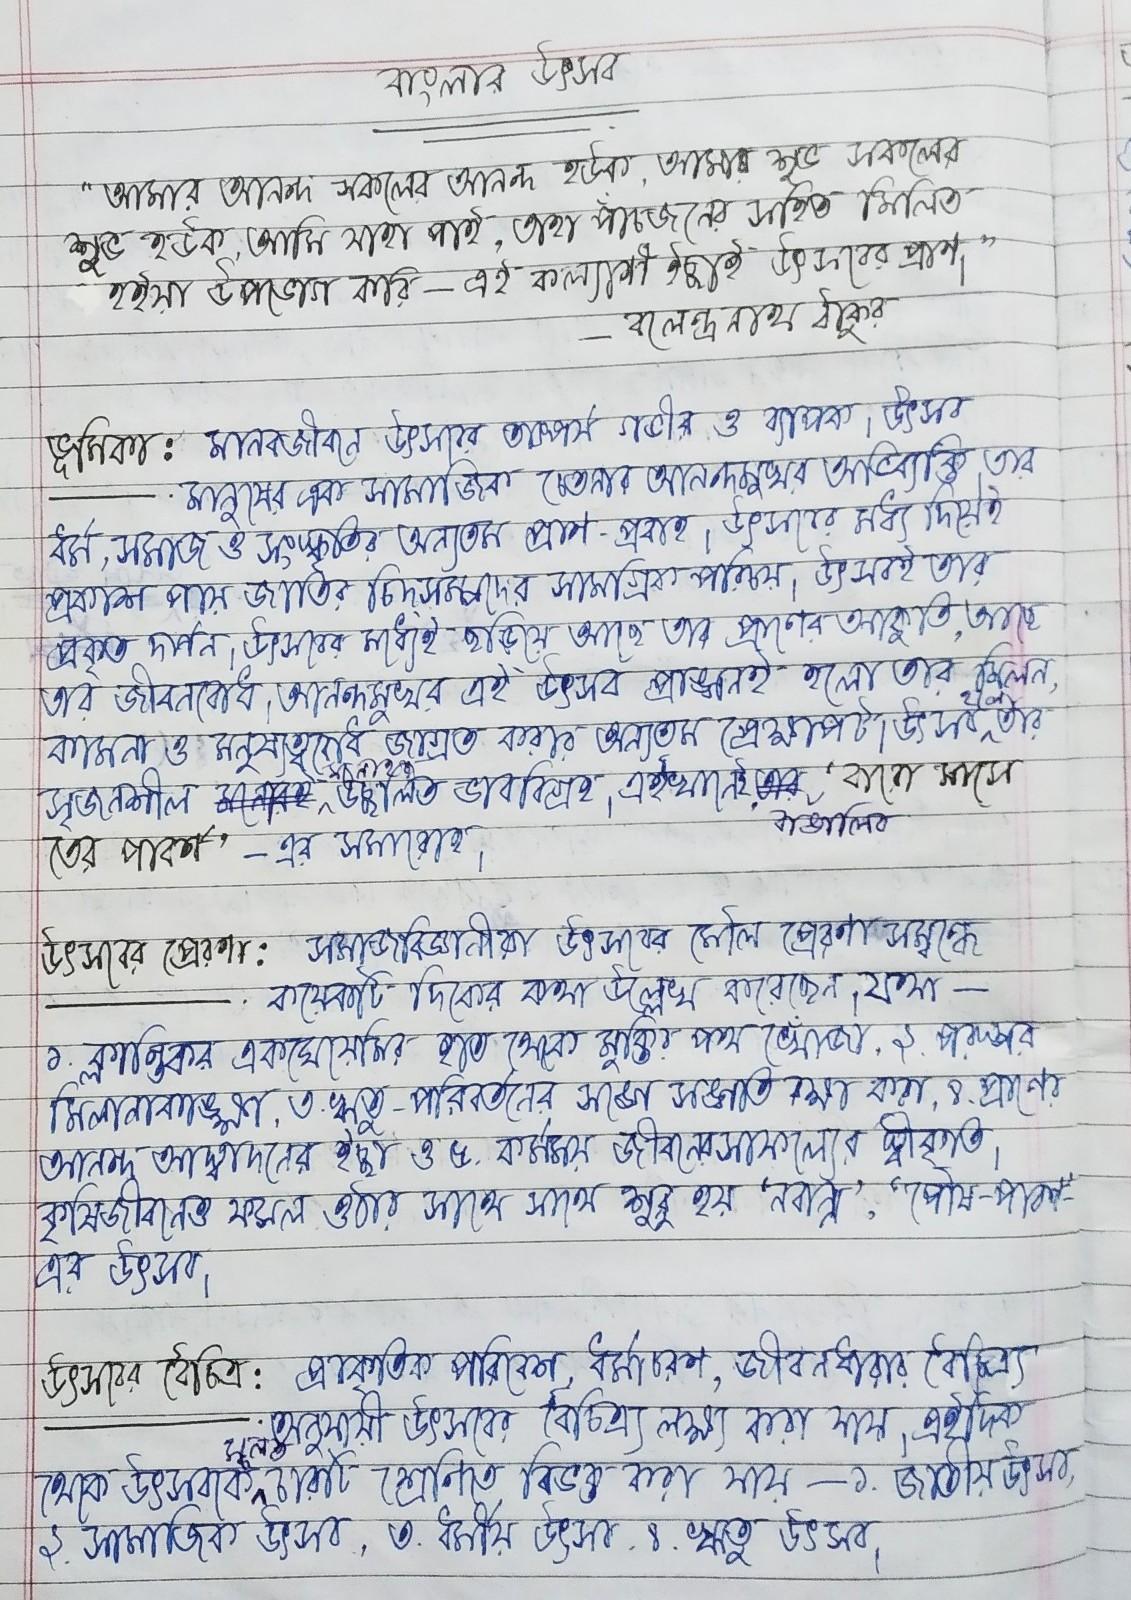 বাংলার উৎসব
"আমার আনন্দ সকলের আনন্দ হউক, আমার শুভ সকলের
শুভ হউক, আমি যাহা পাই, তাহা পাঁচজনের সহিত মিলিত
হইয়া উপভোগ করি – এই কল্যাণী ইচ্ছাই উৎসবের প্রাণ।"
– বলেন্দ্রনাথ ঠাকুর
ভূমিকা: মানবজীবনে উৎসবের তাৎপর্য গভীর ও ব্যাপক। উৎসব
মানুষের এক সামাজিক চেতনার আনন্দমুখর অভিব্যক্তি, তার
ধর্ম, সমাজ ও সংস্কৃতির অন্যতম প্রাণ-প্রবাহ। উৎসবের মধ্য দিয়েই
প্রকাশ পায় জাতির চিদ্‌সম্পদের সামগ্রিক পরিচয়। উৎসবই তার
প্রকৃত দর্পন। উৎসবের মধ্যেই ছড়িয়ে আছে তার প্রাণের আকুতি, আছে
তার জীবনবোধ। আনন্দমুখর এই উৎসব প্রাঙ্গনই হলো তার মিলন,
কামনা ও মনুষ্যত্ববোধ জাগ্রত করার অন্যতম প্রেক্ষাপট। উৎসব হল তার
সৃজনশীল উচ্ছলিত ভাববিগ্রহ। এইখানেই বাঙালির 'বারো মাসে
তের পার্বণ' – এর সমারোহ।
উৎসবের প্রেরণা: সমাজবিজ্ঞানীরা উৎসবের মৌল প্রেরণা সম্বন্ধে
কয়েকটি দিকের কথা উল্লেখ করেছেন। যথা –
১. ক্লান্তিকর একঘেয়েমির হাত থেকে মুক্তির পথ খোঁজা, ২. পরস্পর
মিলনাকাঙ্ক্ষা, ৩. ঋতু-পরিবর্তনের সঙ্গে সঙ্গতি রক্ষা করা, ৪. প্রাণের
আনন্দ আস্বাদনের ইচ্ছা ও ৫. কর্মময় জীবনের সাফল্যের স্বীকৃতি।
কৃষিজীবনেও ফসল ওঠার সাথে সাথে শুরু হয় 'নবান্ন', 'পৌষ-পার্বণ'-
এর উৎসব।
উৎসবের বৈচিত্র: প্রাকৃতিক পরিবেশ, ধর্মাচরণ, জীবনধারার বৈচিত্র্য
অনুযায়ী উৎসবের বৈচিত্র্য লক্ষ্য করা যায়। এইদিক
থেকে উৎসবকে মূলত চারটি শ্রেণিতে বিভক্ত করা যায় – ১. জাতীয় উৎসব,
২. সামাজিক উৎসব, ৩. ধর্মীয় উৎসব. ৪. ঋতু উৎসব।